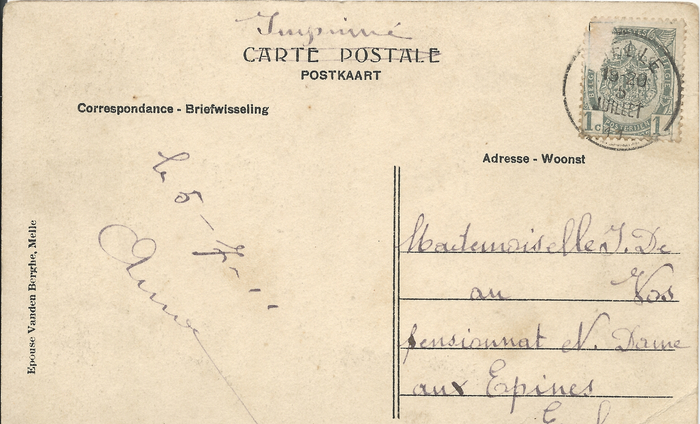 Imprimé
CARTE POSTALE
POSTKAART
Correspondance - Briefwisseling
Adresse - Woonst
ELLE
19 10
5
JUILLET
1c 1
le 5 - 7 - - -
Epouse Vanden Berghe, Melle
Mademoiselle J. De
au Vos
pensionnat N. Dame
aux Epines